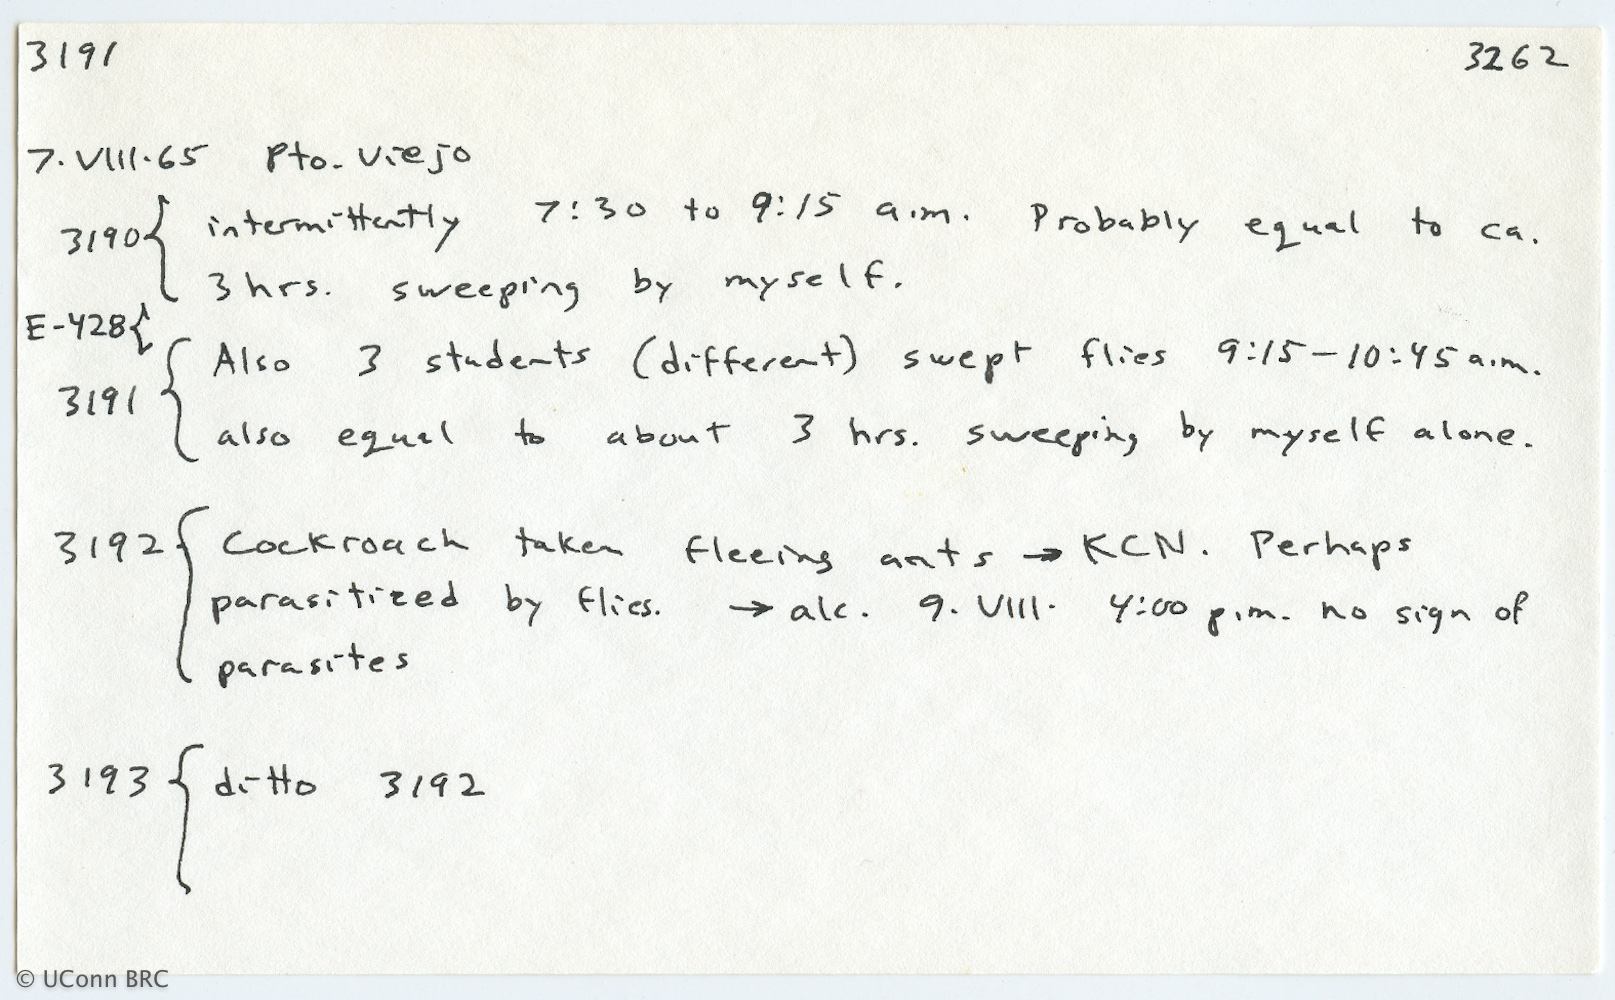 3191 3262
7.VIII.65 Pto. Viejo
3190{ intermittently 7:30 to 9:15 a.m. Probably equal to ca.
3 hrs. sweeping by myself.
E-428{
3191{ Also 3 students (different) swept flies 9:15-10:45 a.m.
also equal to about 3 hrs. sweeping by myself alone.
3192{ Cockroach taken fleeing ants → KCN. Perhaps
parasitized by flies. → alc. 9.VIII. 4:00 p.m. no sign of
parasites
3193{ ditto 3192
© UConn BRC